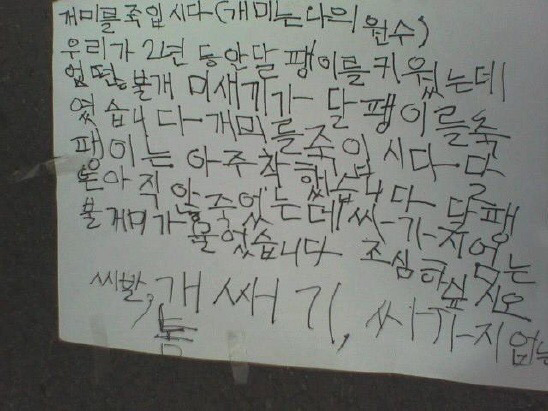 개미를죽입시다(개미는나의 원수)
우리가 2년 동안달팽이를키웠는데
떤불개미새기가 달팽이를죽
였습니다 개미를죽입시다 달
팽이는 아주착했습니다 달팽
아직안죽었는데싸가지업는
불개미가물었습니다 조심하싶시오
씨발,개쌔기,싸가지없는
놈